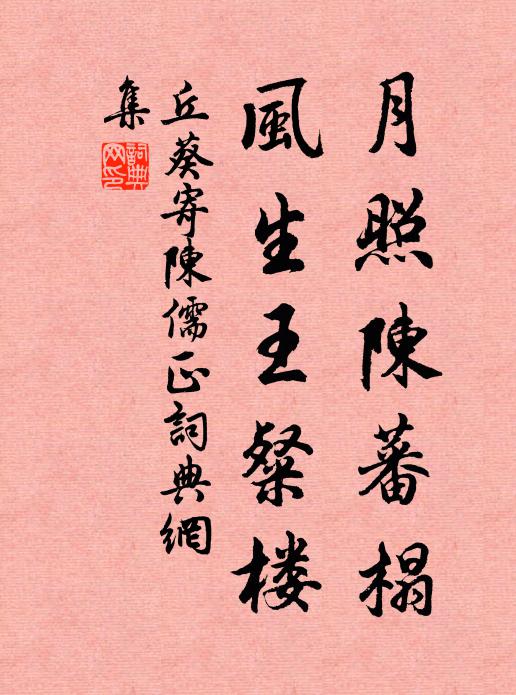 月照陳蕃榻
風生王粲楼
丘葵寄陳儒正詞典網
集
詞典網印